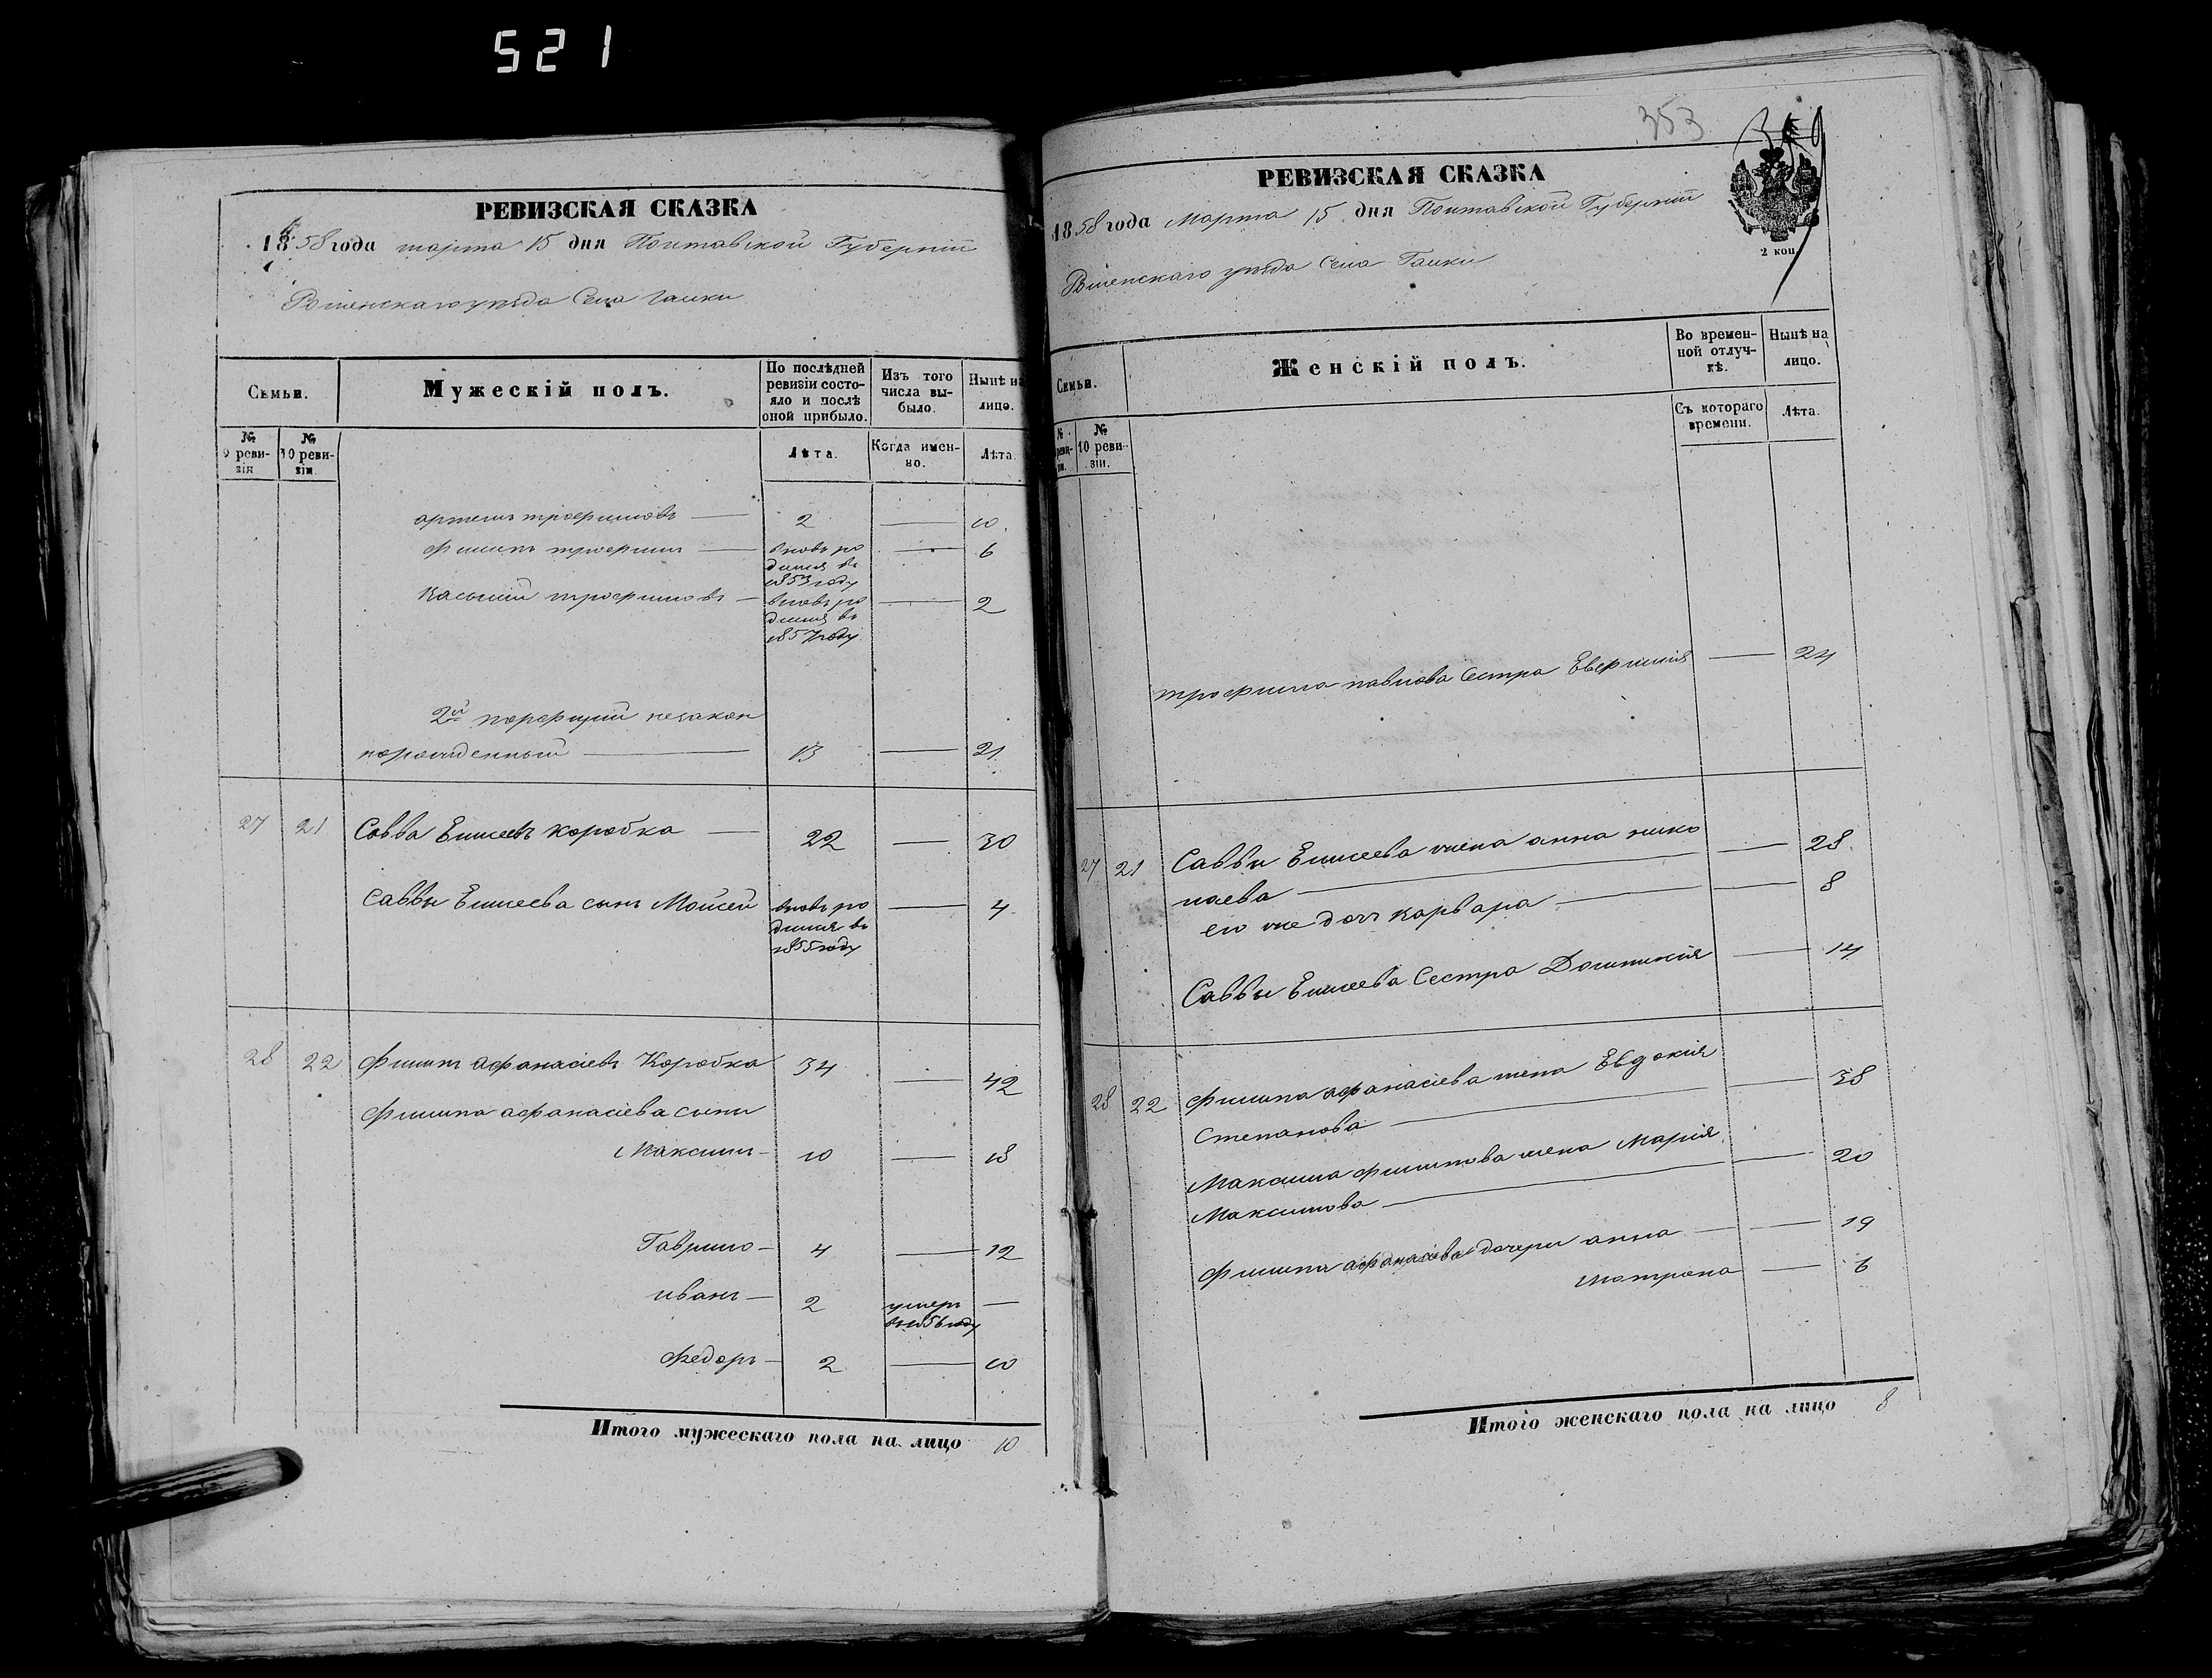 521
РЕВИЗСКАЯ СКАЗКА
1858 года марта 15 дня Полтавской Губерніи
Роменскаго уѣзда Села Галки
Семьи.
Мужескій полъ.
По послѣдней ревизіи состояло и послѣ оной прибыло.
Изъ того числа выбыло.
Нынѣ на лицо.
№ 9 ревизіи
№ 10 ревизіи.
Лѣта.
Когда именно.
Лѣта.
артемъ трофимовъ — 2 — 10
филипъ трофим — вновь родился въ 1853 году — 6
Касьяни трофимовъ — вновь родился въ 1857 году — 2
2й порфирий незакон
норожденный — 13 — 21
27 21 Савва Елисеевъ коробка — 22 — 30
Саввы Елисеева сынъ Моисей вновь родился въ 1855 году — 4
28 22 филипъ афанасіевъ Коробка 34 — 42
филипа афанасіева сыни
Максимъ — 10 — 18
Гаврило — 4 — 12
иванъ — 2 умеръ въ 1856 году —
федоръ — 2 — 10
Итого мужескаго пола на лицо 10
353
РЕВИЗСКАЯ СКАЗКА
1858 года Марта 15 дня Полтавской Губерніи
2 коп
Роменскаго уѣзда Села Галки
Семьи.
Женскій полъ.
Во временной отлучкѣ.
Нынѣ на лицо.
№ ревизіи.
№ 10 ревизіи.
Съ котораго времени.
Лѣта.
трофима павлова Сестра Евфимия — 24
27 21 Саввы Елисеева жена анна нико
лаева — 28
его же доч варвара — 8
Саввы Елисеева Сестра Домникия — 14
28 22 филипа афанасіева жена Евдокия
Степанова — 38
Максима филипова жена Мария
Максимова — 20
филипа афанасіева дочери анна — 19
Матрона — 6
Итого женскаго пола на лицо 8